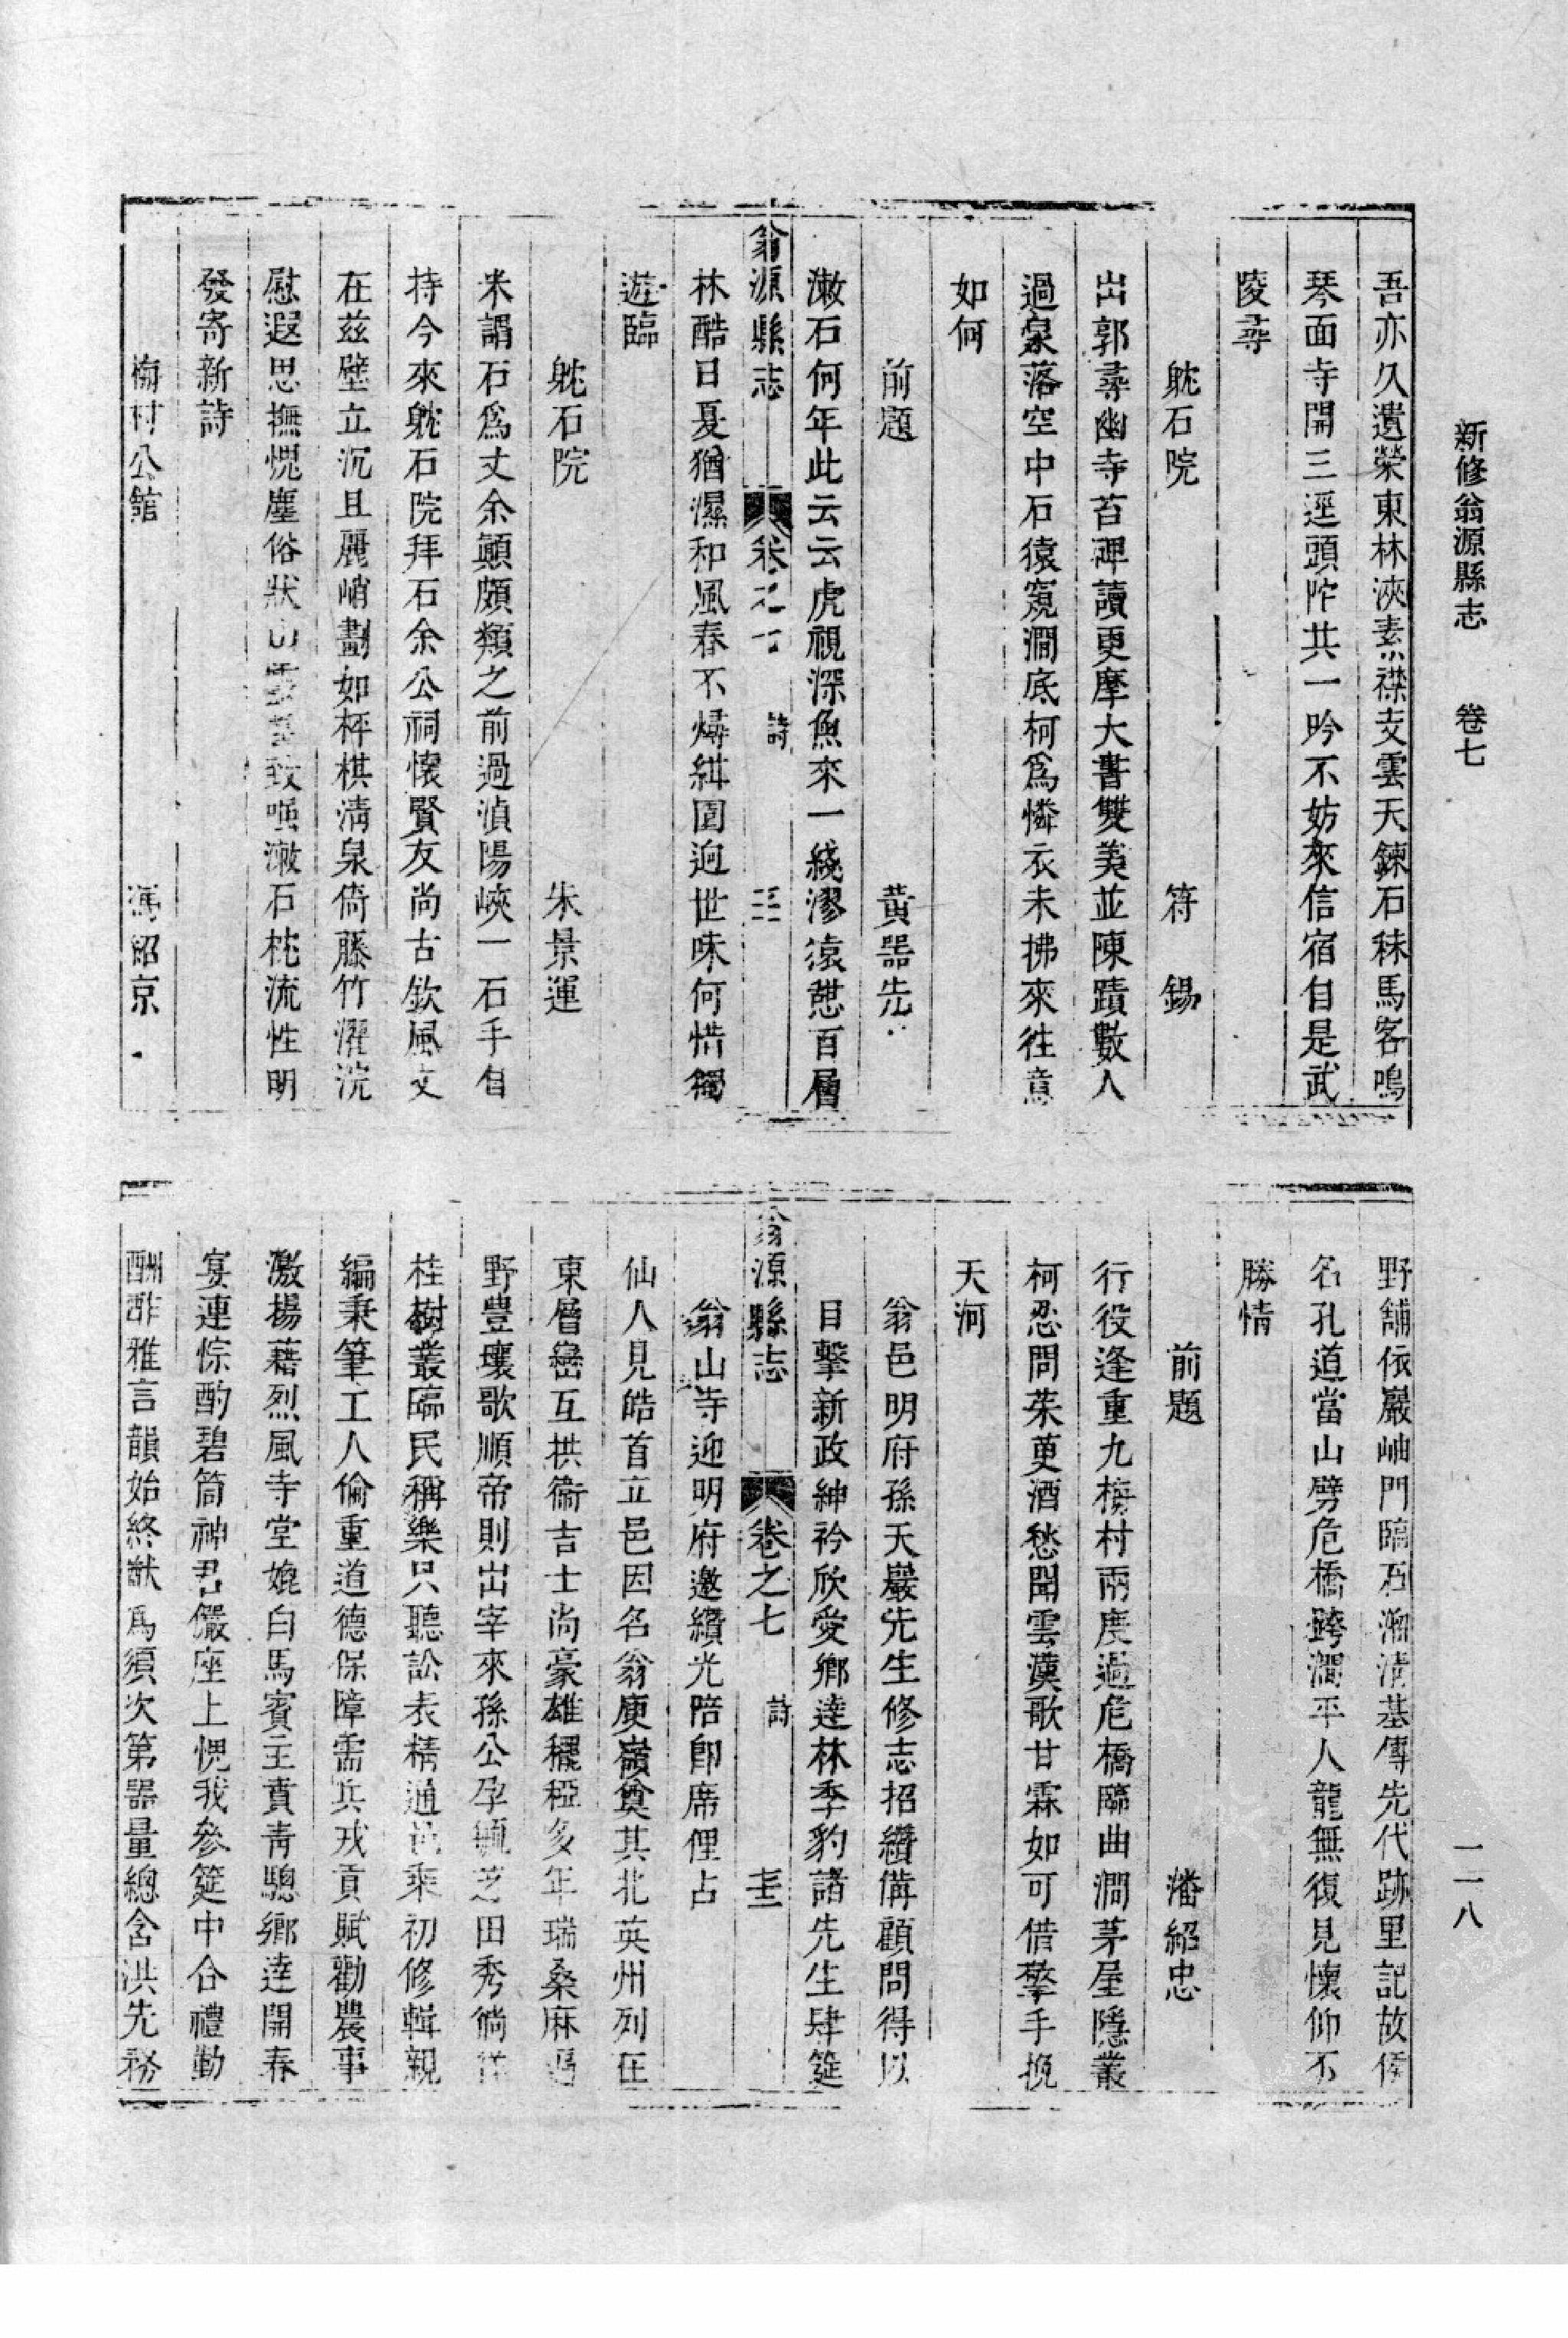 新修翁源縣志　卷七
一一八
吾亦久遺榮東林浹素襟支雲天鍊石秣馬客鳴
琴面寺開三逕頭陀共一吟不妨來信宿自是武
陵尋
躭石院　符錫
出郭尋幽寺苔碑讀更摩大書雙美並陳蹟數人
過泉落空中石猿窺澗底柯爲憐衣未拂來往意
如何
前題　黃器先
潄石何年此云云虎視深魚來一綫漻猿憇百層
翁源縣志　卷之七　詩
林酷日夏猶濕和風春不燖紺園逈世味何惜獨
遊臨
躭石院　朱景運
米謂石爲丈余顛頗類之前過湞陽峽一石手自
持今來躭石院拜石余公祠懷賢友尚古欽風文
在茲壁立沉且麗峭劃如枰棋清泉倚藤竹濯浣
慰遐思撫愧塵俗狀山雲致嗤潄石枕流性明
發寄新詩
梅村公館　馮紹京
野舖依巖岫門臨石澗清基傳先代跡里記故侯
名孔道當山劈危橋跨澗平人龍無復見懷仰不
勝情
前題　潘紹忠
行役逢重九梅村兩度過危橋臨曲澗茅屋隱叢
柯忍問茱萸酒愁聞雲漢歌甘霖如可借擎手挽
天河
翁邑明府孫天巖先生修志招纘備顧問得以
目擊新政紳衿欣愛鄉達林季豹諸先生肆筵
翁源縣志　卷之七　詩
翁山寺迎明府邀纘光陪卽席俚占
仙人見皓首立邑因名翁庾嶺奠其北英州列在
東層巒互拱衞吉士尚豪雄穲稏多年瑞桑麻遍
野豐壤歌順帝則出宰來孫公孕毓芝田秀徜徉
桂樹叢臨民稱樂只聽訟表精通邑乘初修輯親
編秉筆工人倫重道德保障需兵戎貢賦勸農事
激揚藉烈風寺堂媿白馬賓主賁青驄鄉達開春
宴連悰酌碧筒神君儼座上愧我參筵中合禮勤
酬酢雅言韻始終猷爲須次第器量總含洪先務